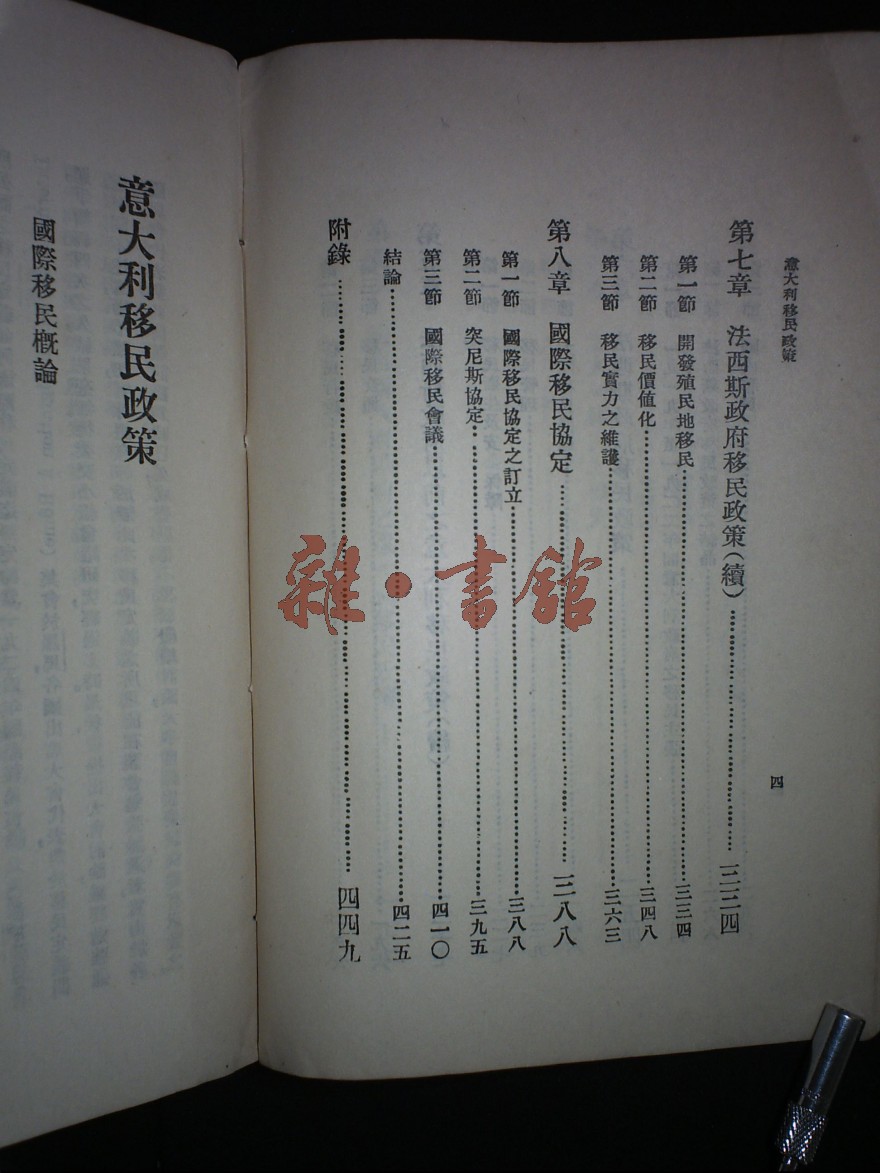 意大利移民政策
四
第七章 法西斯政府移民政策(續)……三三四
第一節 開發殖民地移民……三三四
第二節 移民價值化……三四八
第三節 移民實力之維護……三六三
第八章 國際移民協定……三八八
第一節 國際移民協定之訂立……三八八
第二節 突尼斯協定……三九五
第三節 國際移民會議……四一〇
結論……四二五
附錄……四四九
意大利移民政策
國際移民概論
雜·書館